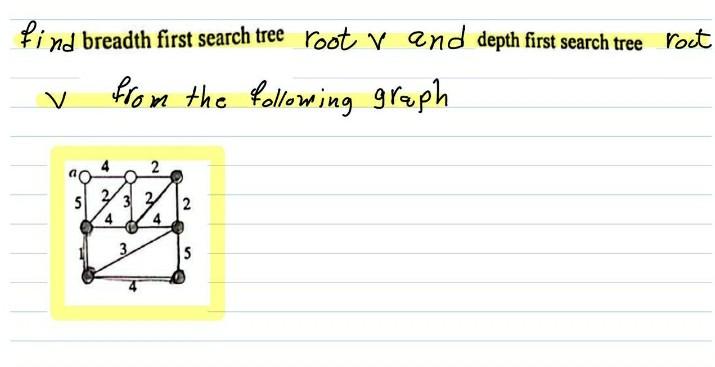 find breadth first search tree root v and depth first search tree root
v from the following graph
a 4 2
5 2 3 2 2
4 4
1 3 5
4